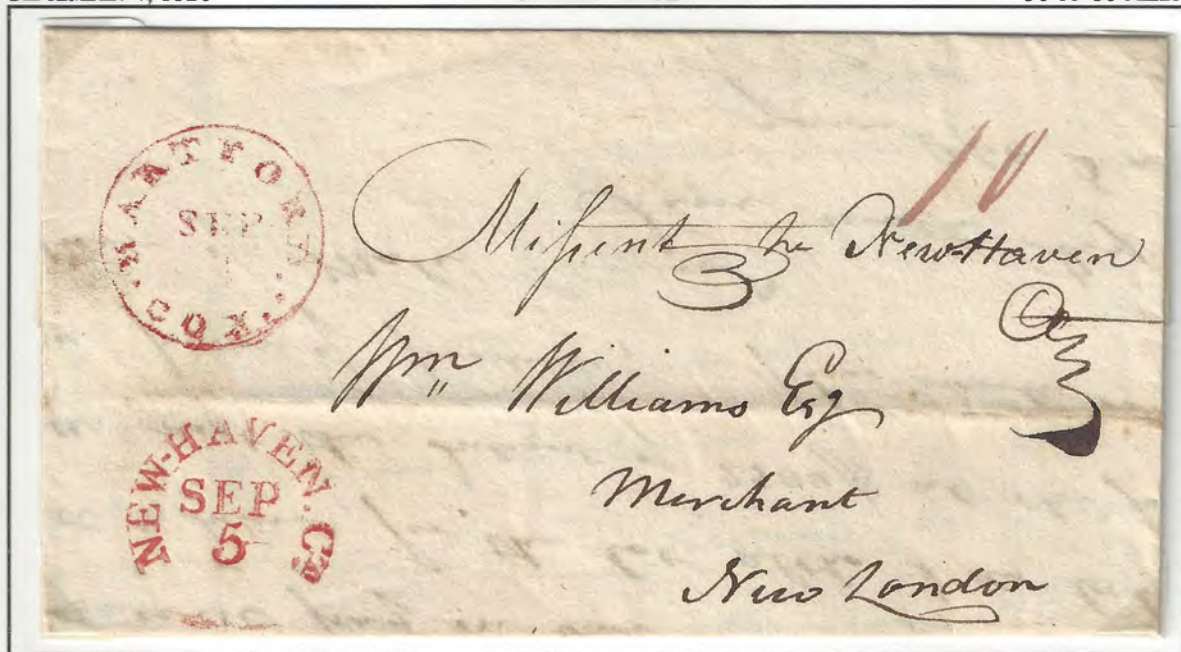 HARTFORD CON.
SEP
10
Missent to New-Haven
Wm Williams Esq
Merchant
New London
NEW-HAVEN. Ct.
SEP
5